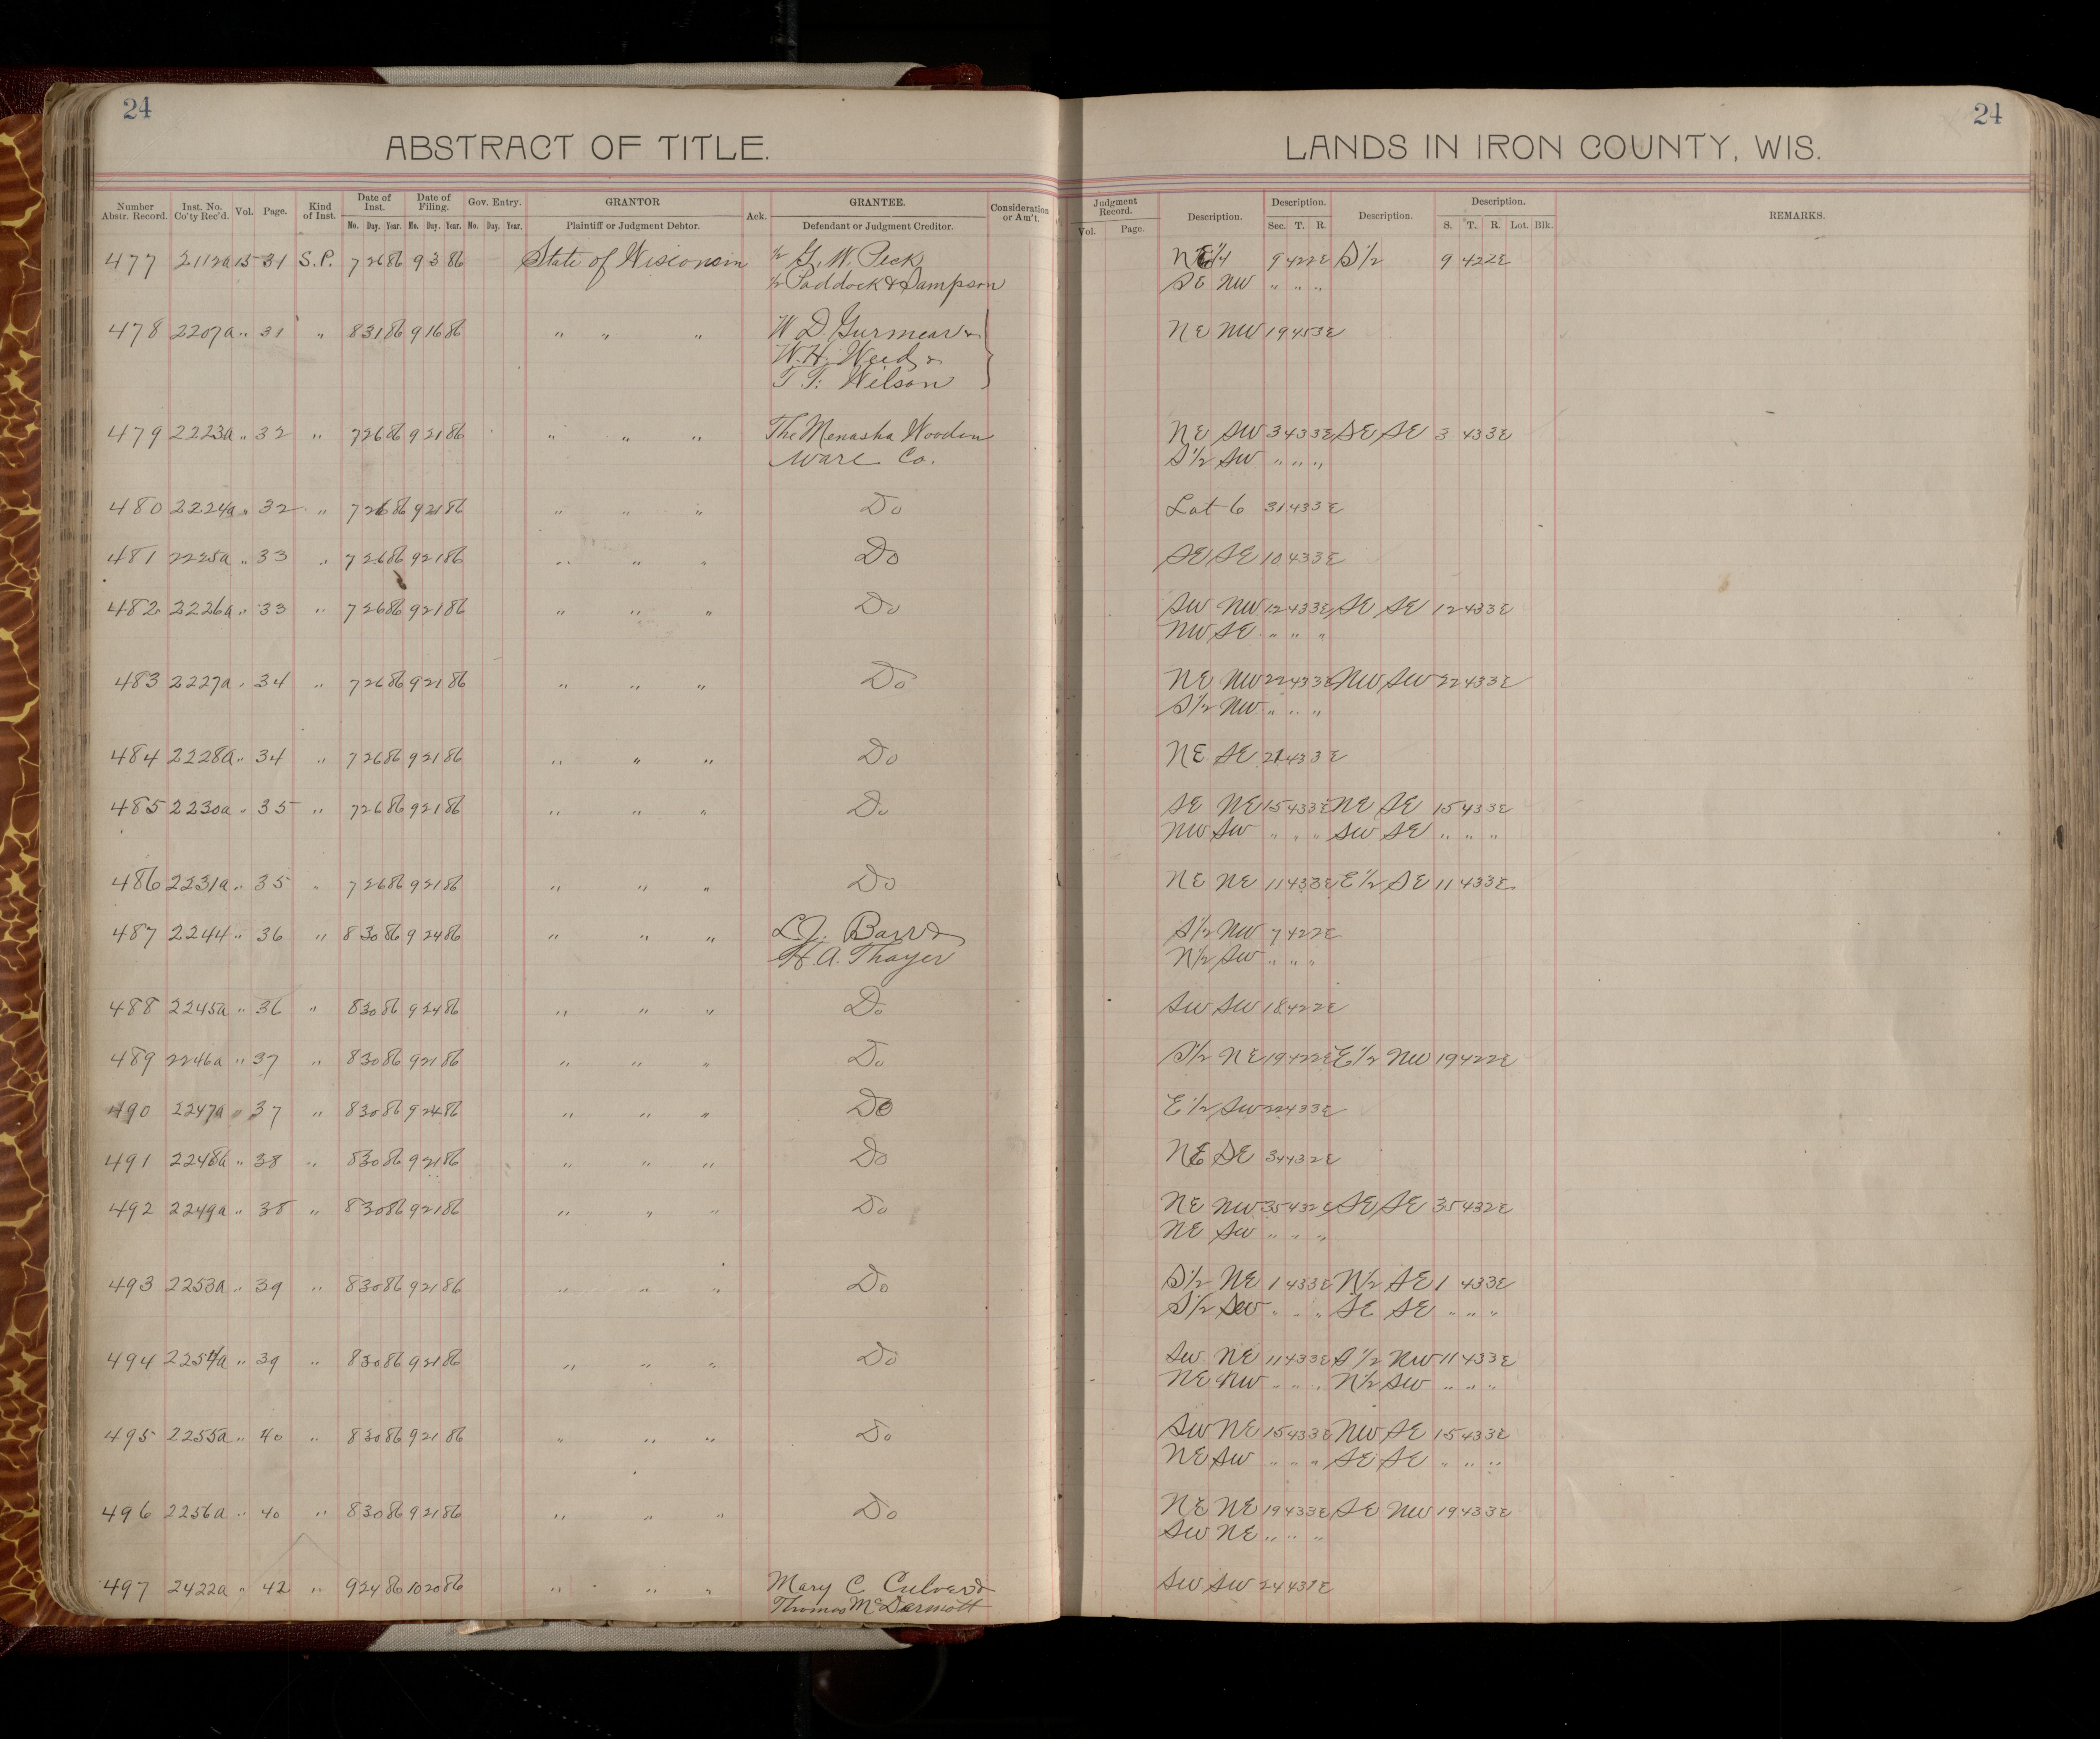 24
24
ABSTRACT OF TITLE.
LANDS IN IRON COUNTY, WIS.
Number Abstr. Record. Inst. No. Co'ty Rec'd. Vol. Page. Kind of Inst. Date of Inst. Date of Filing. Gov. Entry. GRANTOR Ack. GRANTEE. Consideration or Am't. Judgment Record. Description. Description. Description. Description. REMARKS.
Mo. Day. Year. Mo. Day. Year. Mo. Day. Year. Plaintiff or Judgment Debtor. Defendant or Judgment Creditor. Vol. Page. Sec. T. R. S. T. R. Lot. Blk.
477 2112a 15 31 S.P. 7 26 86 9 3 86 State of Wisconsin 1/2 G. W. Peck NE 1/4 9 42 2E S 1/2 9 42 2E
1/2 Paddock & Sampson SE NW " " "
478 2207a " 31 " 8 31 86 9 16 86 " " " W D. Gurnear & NE NW 19 45 3E
W. H. Weed &
T. F. Wilson
479 2223a " 32 " 7 26 86 9 21 86 " " " The Menasha Wooden NE SW 3 43 3E SE SE 3 43 3E
Ware Co. S 1/2 SW " " "
480 2224a " 32 " 7 26 86 9 21 86 " " " Do Lot 6 31 43 3E
481 2225a " 33 " 7 26 86 9 21 86 " " " Do SE SE 10 43 3E
482 2226a " 33 " 7 26 86 9 21 86 " " " Do SW NW 12 43 3E SE SE 12 43 3E
NW SE " " "
483 2227a " 34 " 7 26 86 9 21 86 " " " Do NE NW 22 43 3E NW SW 22 43 3E
S 1/2 NW " " "
484 2228a " 34 " 7 26 86 9 21 86 " " " Do NE SE 21 43 3E
485 2230a " 35 " 7 26 86 9 21 86 " " " Do SE NE 15 43 3E NE SE 15 43 3E
NW SW " " " SW SE " " "
486 2231a " 35 " 7 26 86 9 21 86 " " " Do NE NE 11 43 3E E 1/2 SE 11 43 3E
487 2244 " 36 " 8 30 86 9 24 86 " " " L. J. Barr & S 1/2 NW 7 42 2E
H. A. Thayer N 1/2 SW " " "
488 2245a " 36 " 8 30 86 9 24 86 " " " Do SW SW 18 42 2E
489 2246a " 37 " 8 30 86 9 21 86 " " " Do S 1/2 NE 19 42 2E E 1/2 NW 19 42 2E
490 2247a " 37 " 8 30 86 9 24 86 " " " Do E 1/2 SW 22 43 3E
491 2248a " 38 " 8 30 86 9 21 86 " " " Do NE SE 34 43 2E
492 2249a " 38 " 8 30 86 9 21 86 " " " Do NE NW 35 43 2E SE SE 35 43 2E
NE SW " " "
493 2253a " 39 " 8 30 86 9 21 86 " " " Do S 1/2 NE 1 43 3E N 1/2 SE 1 43 3E
S 1/2 SW " " " SE SE " " "
494 2254a " 39 " 8 30 86 9 21 86 " " " Do SW NE 11 43 3E S 1/2 NW 11 43 3E
NE NW " " " N 1/2 SW " " "
495 2255a " 40 " 8 30 86 9 21 86 " " " Do SW NE 15 43 3E NW SE 15 43 3E
NE SW " " " SE SE " " "
496 2256a " 40 " 8 30 86 9 21 86 " " " Do NE NE 19 43 3E SE NW 19 43 3E
SW NE " " "
497 2422a " 42 " 9 24 86 10 20 86 " " " Mary C Culver & SW SW 24 43 1E
Thomas McDermott